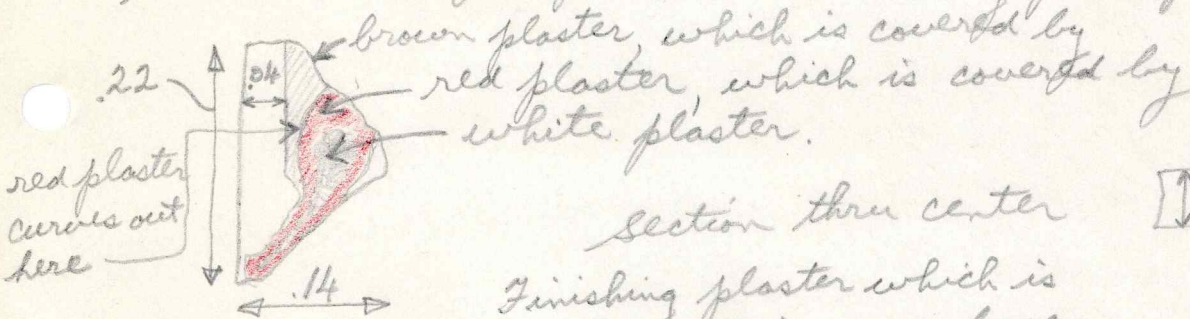 brown plaster, which is covered by
red plaster, which is covered by
white plaster.
.22
.04
red plaster
curves out
here
.14
section thru center
Finishing plaster which is